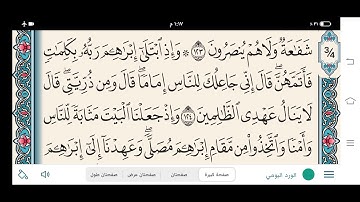 ٦:١٧ م
٨:٣١
3/4
شَفَٰعَةٌ وَلَا هُمْ يُنصَرُونَ ١٢٣ ۞ وَإِذِ ٱبْتَلَىٰٓ إِبْرَٰهِـۧمَ رَبُّهُۥ بِكَلِمَٰتٍ
فَأَتَمَّهُنَّ ۖ قَالَ إِنِّى جَاعِلُكَ لِلنَّاسِ إِمَامًا ۖ قَالَ وَمِن ذُرِّيَّتِى ۖ قَالَ
لَا يَنَالُ عَهْدِى ٱلظَّٰلِمِينَ ١٢٤ وَإِذْ جَعَلْنَا ٱلْبَيْتَ مَثَابَةً لِّلنَّاسِ
وَأَمْنًا وَٱتَّخِذُوا۟ مِن مَّقَامِ إِبْرَٰهِـۧمَ مُصَلًّى ۖ وَعَهِدْنَآ إِلَىٰٓ إِبْرَٰهِـۧمَ
الورد اليومي
صفحة كبيرة
صفحتان
صفحتان عرض
صفحتان طول